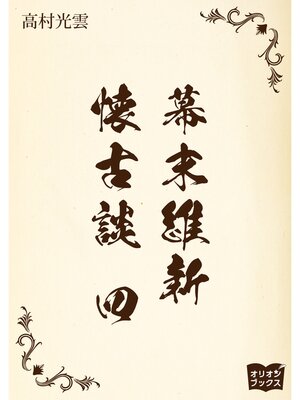 高村光雲
幕末維新
懐古談 四
オリオン
ブックス